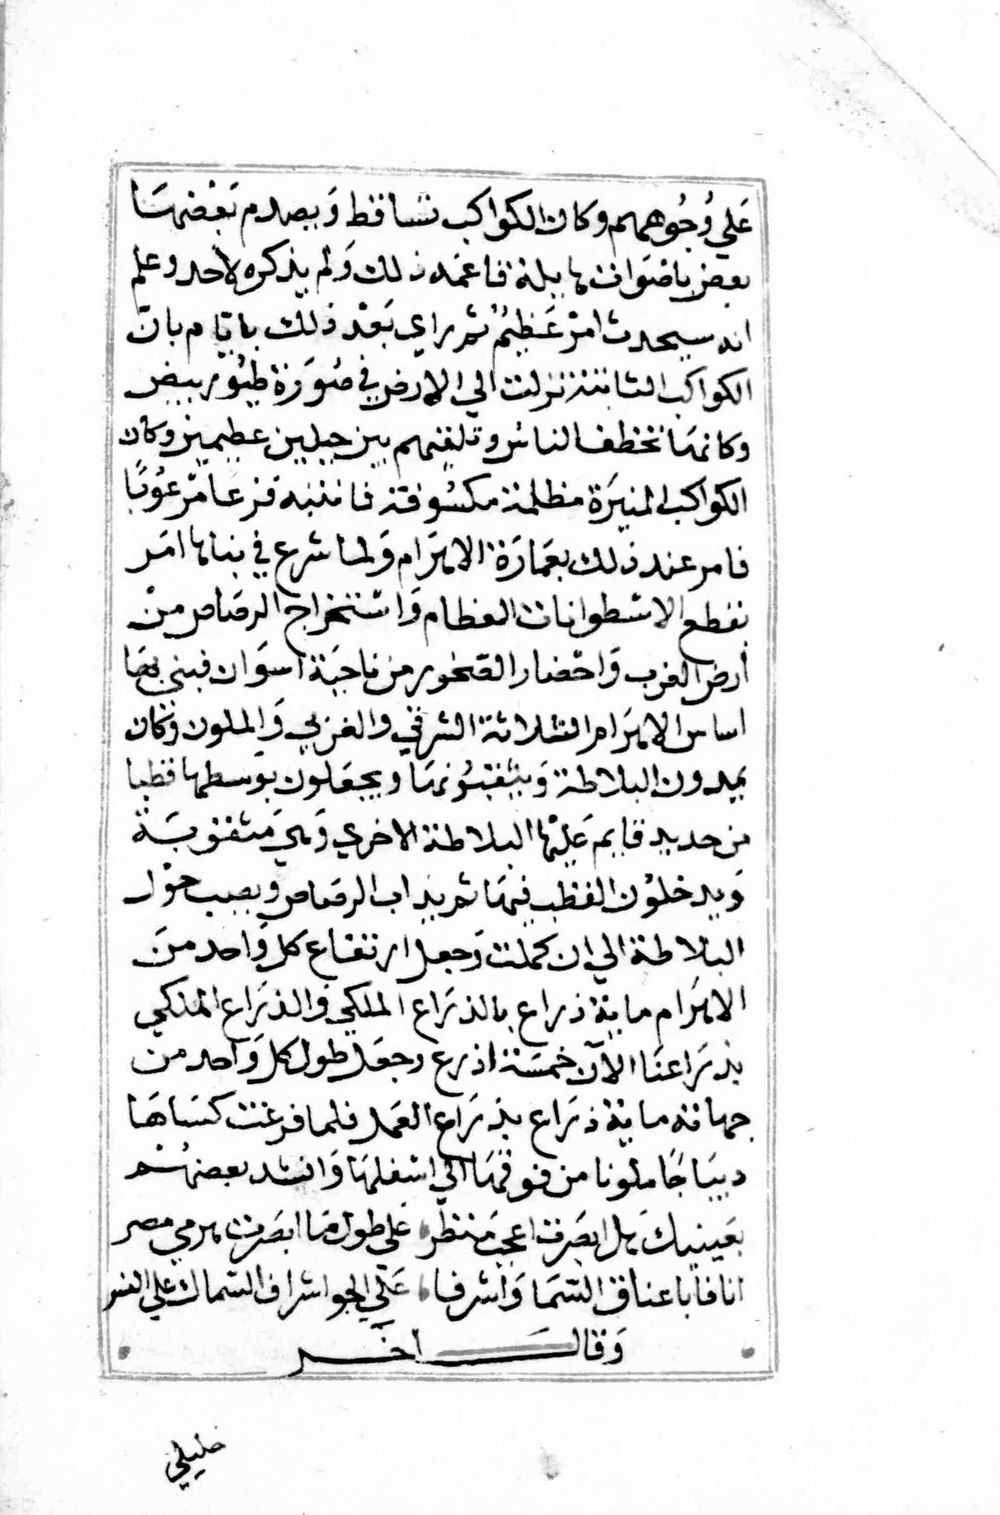 عَلي وُجُوههم وكان الكواكب تتساقط وَيصدم بَعْضهَا
بعض باصْوَات هايلة فاغمه ذلك وَلم يذكره لاحد وعلم
انه سيحدث امرٌ عَظِيمٌ ثم راي بَعْد ذلك بايّام بانّ
الكواكب الثابتة نزلت الي الارض في صُورَة طيُور بيض
وكانهَا تخطف الناس وتلقيهم بين جبلين عظيمين وكان
الكواكب المنيرَة مظلمة مكسُوفة فانتبه فزعا مَرعُوبًا
فامر عند ذلك بعمَارَة الاهرَام وَلما شرع في بناها امَر
بقطع الاسْطوانات العظام وَاسْتخراج الرصَاص منْ
ارض الغرب وَاحْضار الصّخور من ناحيَة اسوَان فبني بهَا
اساس الاهرَام الثلاثة الشرقي والغربي وَالملون وَكان
يمدون البلاطة وَيثقبُونهَا ويجعَلون بوَسطها قطبا
من حديد قايم عَليْها البلاطة الاخري وَهي مَثقوبَة
وَيدخلوْن القطب فيهَا ثم يذاب الرصَاص ويصب حَوْل
البلاطة الي ان كملت وَجعل ارتفاع كل وَاحد منَ
الاهرَام ماية ذراع بالذرَاع الملكي وَالذرَاع الملكي
بذرَاعنَا الآن خمسَة اذرع وجعَل طول كل وَاحد من
جهاته ماية ذرَاع بذرَاع العَمل فلما فرغت كسَاهَا
ديبَاجًا ملونا من فوقهَا الي اسْفلهَا وَانشد بعضهُم
بعَينيكَ هل ابصَرت اعجبَ منظرٍ على طول مَا ابصَرت هرمي مصر
انافا باعناق السّمَا وَاشرفا عَلي الجو اشراف السّماك علي النسر
وَقالَ اخَر
خليلي